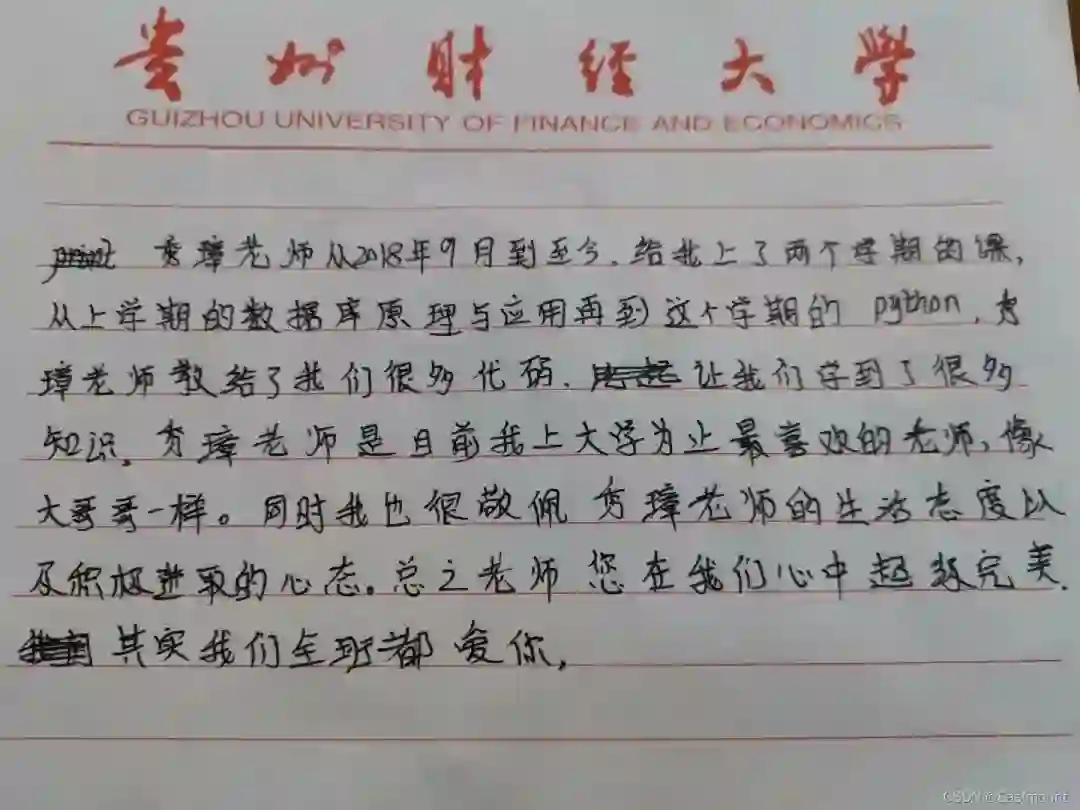 贵州财经大学
GUIZHOU UNIVERSITY OF FINANCE AND ECONOMICS
print 秀璋老师从2018年9月到至今，给我上了两个学期的课，
从上学期的数据库原理与应用再到这个学期的 python，秀
璋老师教给了我们很多代码，让我们学到了很多
知识，秀璋老师是目前我上大学为止最喜欢的老师，像
大哥哥一样。同时我也很敬佩秀璋老师的生活态度以
及积极进取的心态。总之老师您在我们心中超级完美．
其实我们全班都爱你，
CSDN @Eastmount